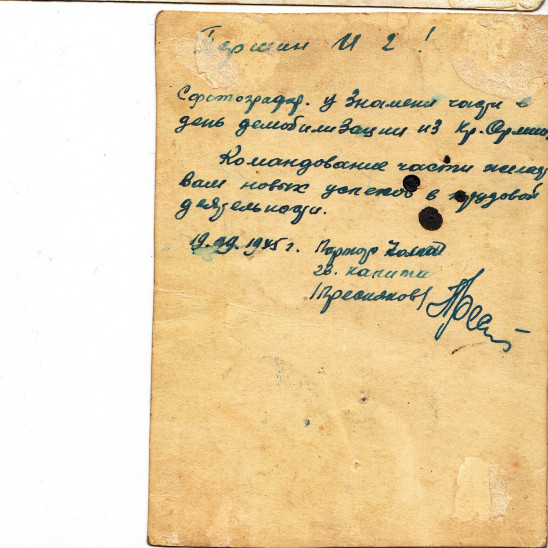 Першин И 2!
Сфотографир. у Знамени части в
день демобилизации из Кр. Армии
Командование части желает
Вам новых успехов в трудовой
деятельности.
19.09.1945 г. Парторг
гв. капитан
(Пресняков)